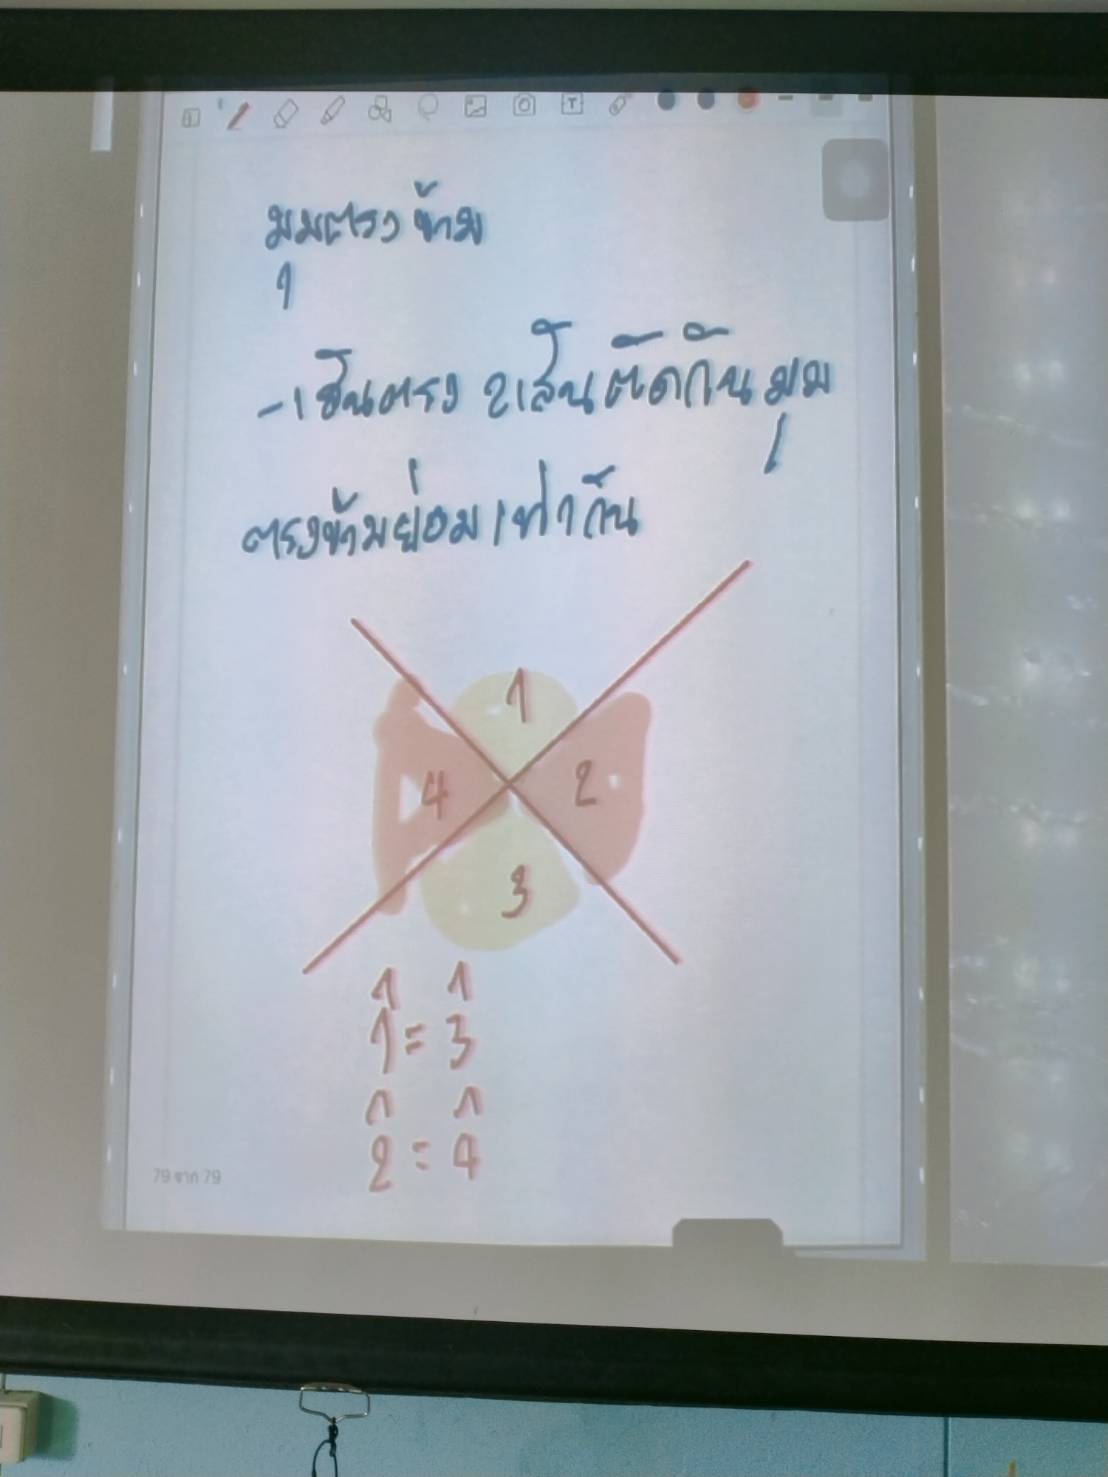 มุมตรงข้าม
-เส้นตรง 2เส้นตัดกันมุม
ตรงข้ามย่อมเท่ากัน
1
4 2
3
1̂ = 3̂
2̂ = 4̂
79 จาก 79